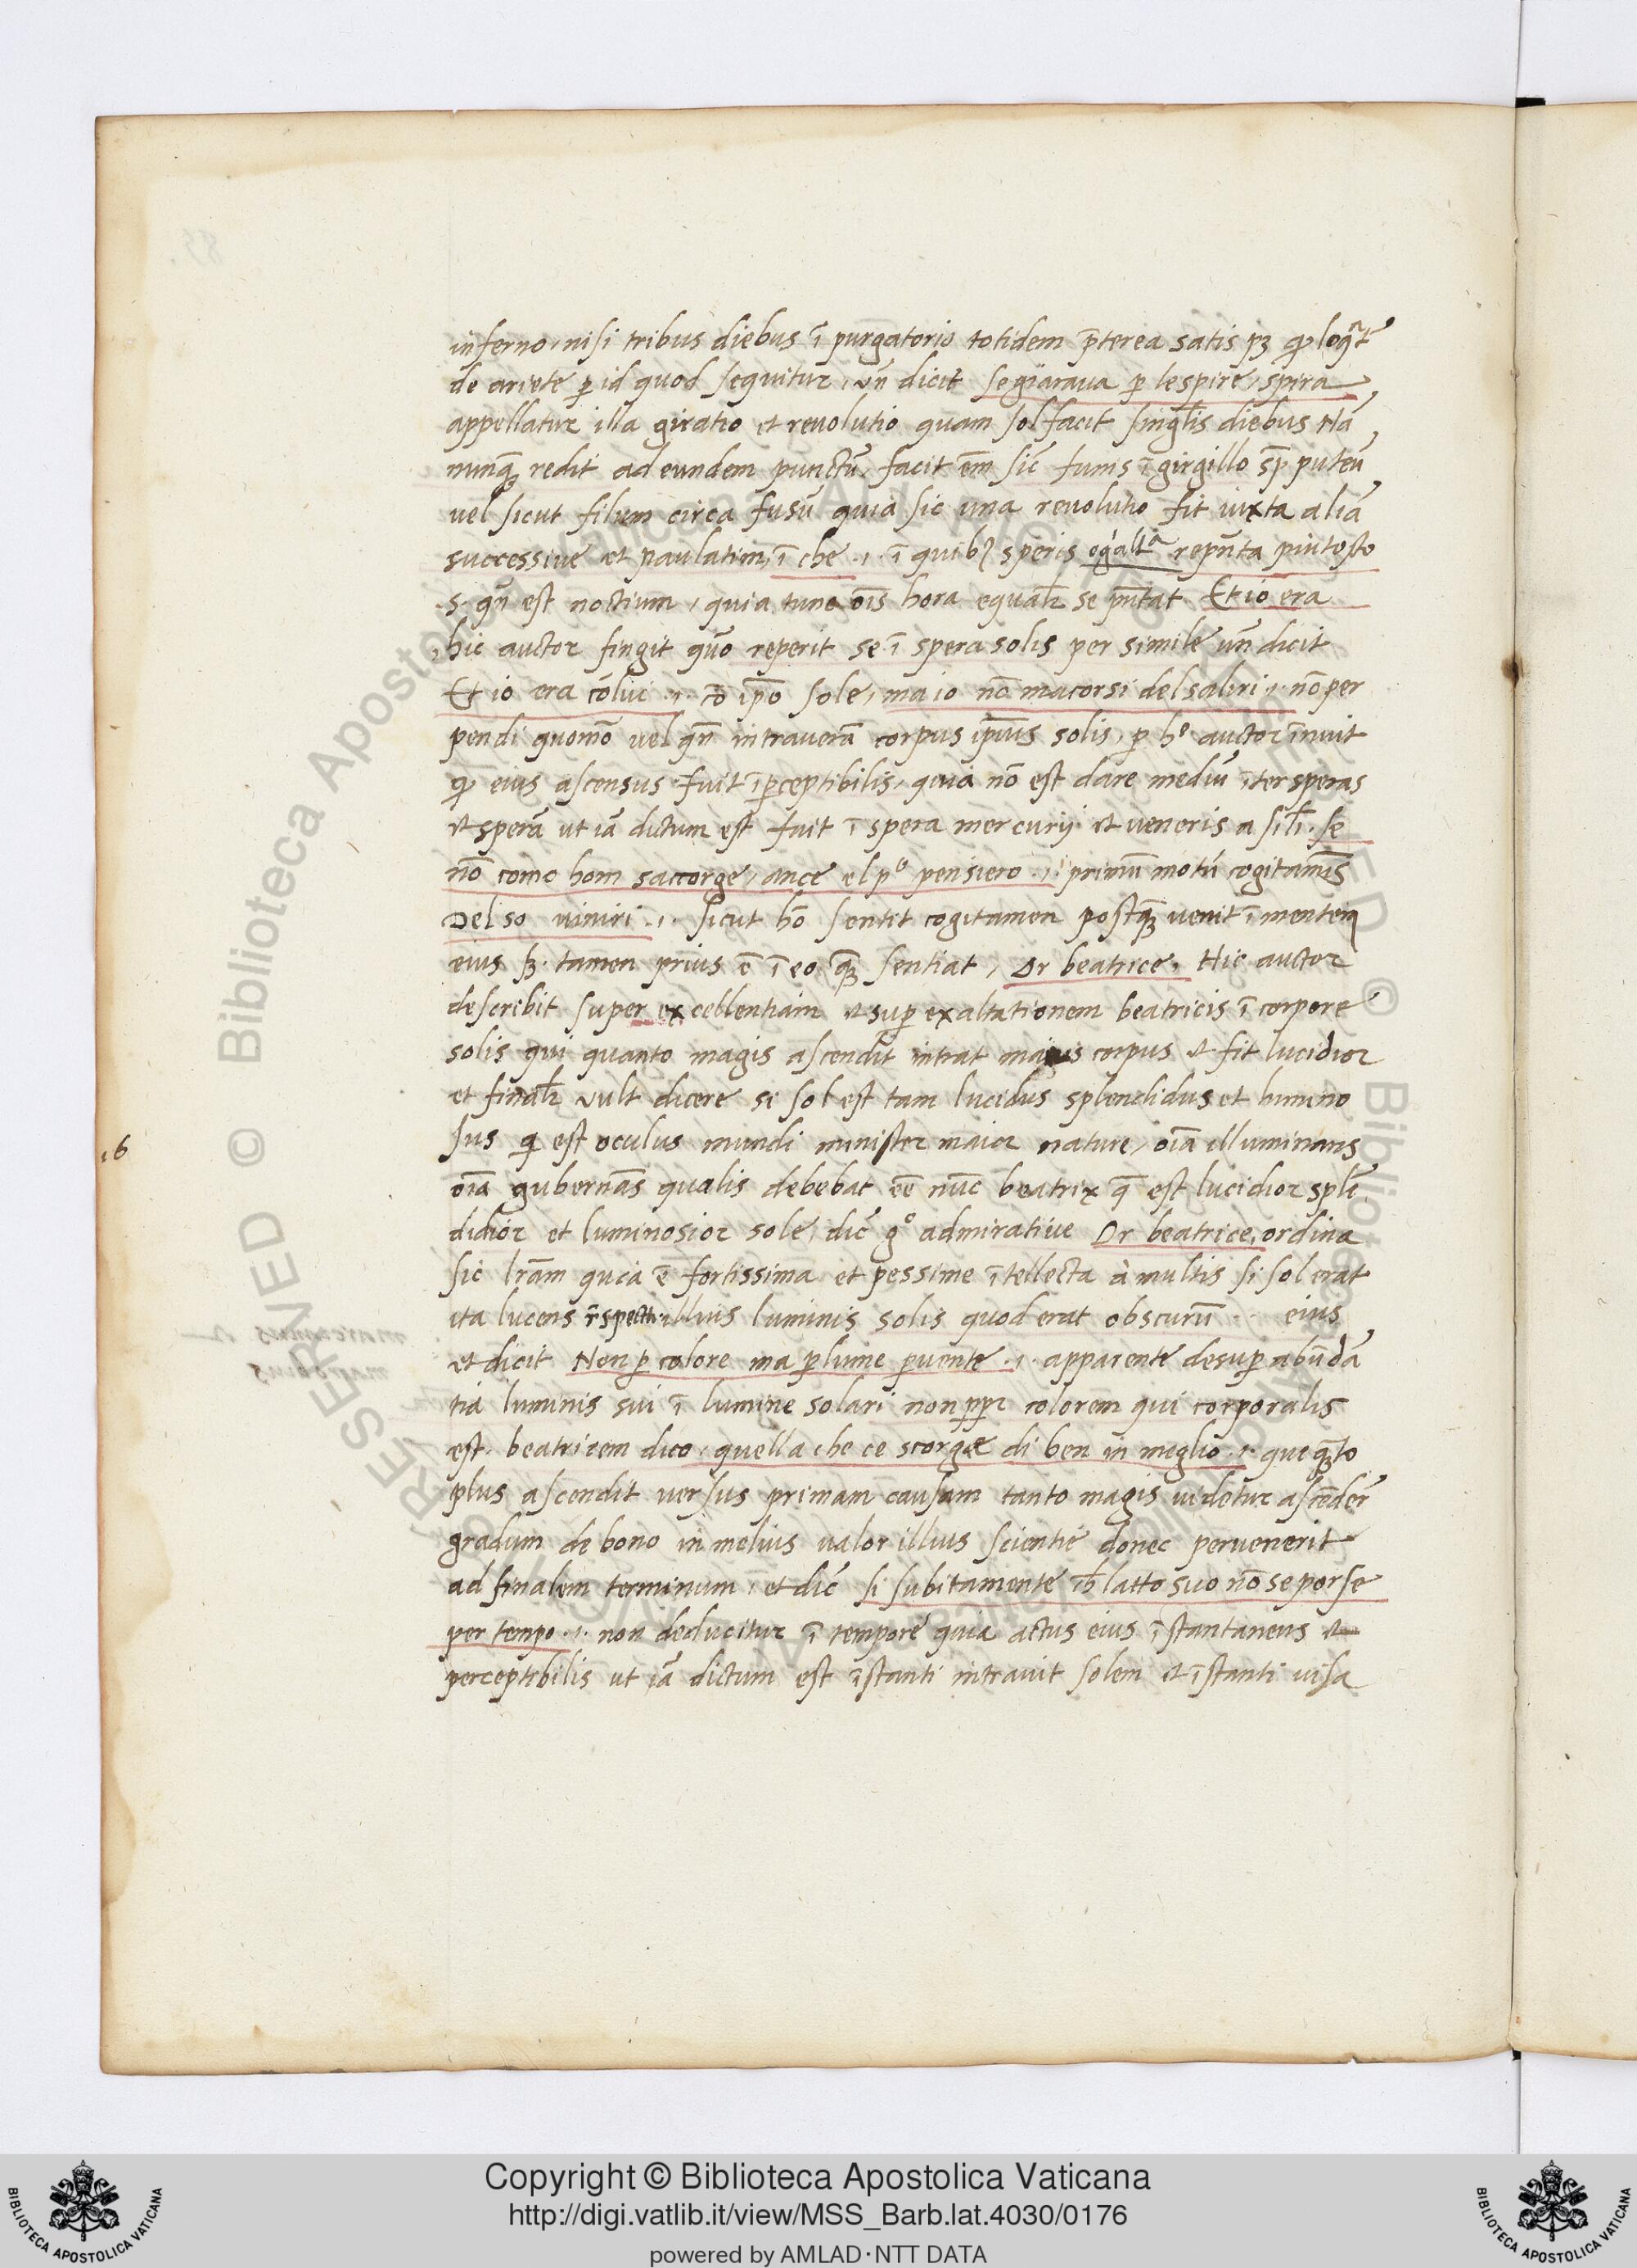 inferno, nisi tribus diebus ī purgatorio totidem p̄terea satis pꝫ ꝙ loqͣt̄
de ariete ꝑ id quod sequitur, vn̄ dicit segiaraua ꝑ lespire, spira
appellatur illa giratio et reuolutio quam sol facit singl̄is diebus Nā
nunqꝫ redit ad eundem punctū, facit em̄ sic̄ funis ī girgillo sp̄ puteū
uel sicut filum circa fusū quia sic una reuolutio fit iuxta aliā
successiue et paulatim, ī che .ı. ī quibꝰ speris repn̄ta piutosto
.s. qn̄ est noctium, quia tunc ois̄ hora equalr̄ se pn̄tat Et io era
, hic auctor fingit quō reperit se ī spera solis per simile un̄ dicit
Et io era cōlui .ı. cō ip̄o sole, ma io nō macorsi del saliri .ı. nō per
pendi quomō uel qn̄ intrauerā corpus ip̄ius solis, ꝑ hͦ auctor īnuit
ꝙ eius ascensus fuit īꝑceptibilis, quia nō est dare mediū īter speras
et sperā ut iā dictum est fuit ī spera mercurij et ueneris a sil̄i. se
nō come hom saccorge, ance el pͦ pensiero .ı. primū motū cogitamīs
Del so uiniri .ı. sicut hō sentit cogitamen postqꝫ uenit ī mentem
eius sꝫ tamen prius ē ī eo qꝫ sentiat, Or beatrice. Hic auctor
describit super excellentiam et suꝑ exaltationem beatricis ī corpore
solis qui quanto magis ascendit intrat maius corpus et fit lucidior
et finalr̄ vult dicere si sol est tam lucidus splendidus et lumino
sus qui est oculus mundi minister maior nature, oīa illuminans
oīa gubernās qualis debebat eē nūc beatrix q̄ est lucidior splē
didior et luminosior sole, dic̄ gͦ admiratiue Or beatrice, ordina
sic lr̄am quia ē fortissima et pessime ītellecta à multis si sol erat
ita lucens r̄spectu illius luminis solis quod erat obscurū eius
et dicit Non ꝑ colore ma ꝑ lume ꝑuente .ı. apparente desuꝑ abūdā
tia luminis sui ī lumine solari non ꝓpr̄ colorem qui corporalis
est. beatricem dico, quella che ce scorge di ben in meglio .ı. que qꝫto
plus ascendit uersus primam causam tanto magis uidetur ascēder̄
gradum de bono in melius ualor illius scientie donec peruenerit
ad finalem terminum, et dic̄ si subitamente latto suo nō se porse
per tempo .ı. non deducitur ī tempore quia actus eius īstantaneus et
perceptibilis ut iā dictum est īstanti intrauit solem et īstanti uisa
16
Copyright © Biblioteca Apostolica Vaticana
http://digi.vatlib.it/view/MSS_Barb.lat.4030/0176
powered by AMLAD·NTT DATA
BIBLIOTECA APOSTOLICA VATICANA
BIBLIOTECA APOSTOLICA VATICANA